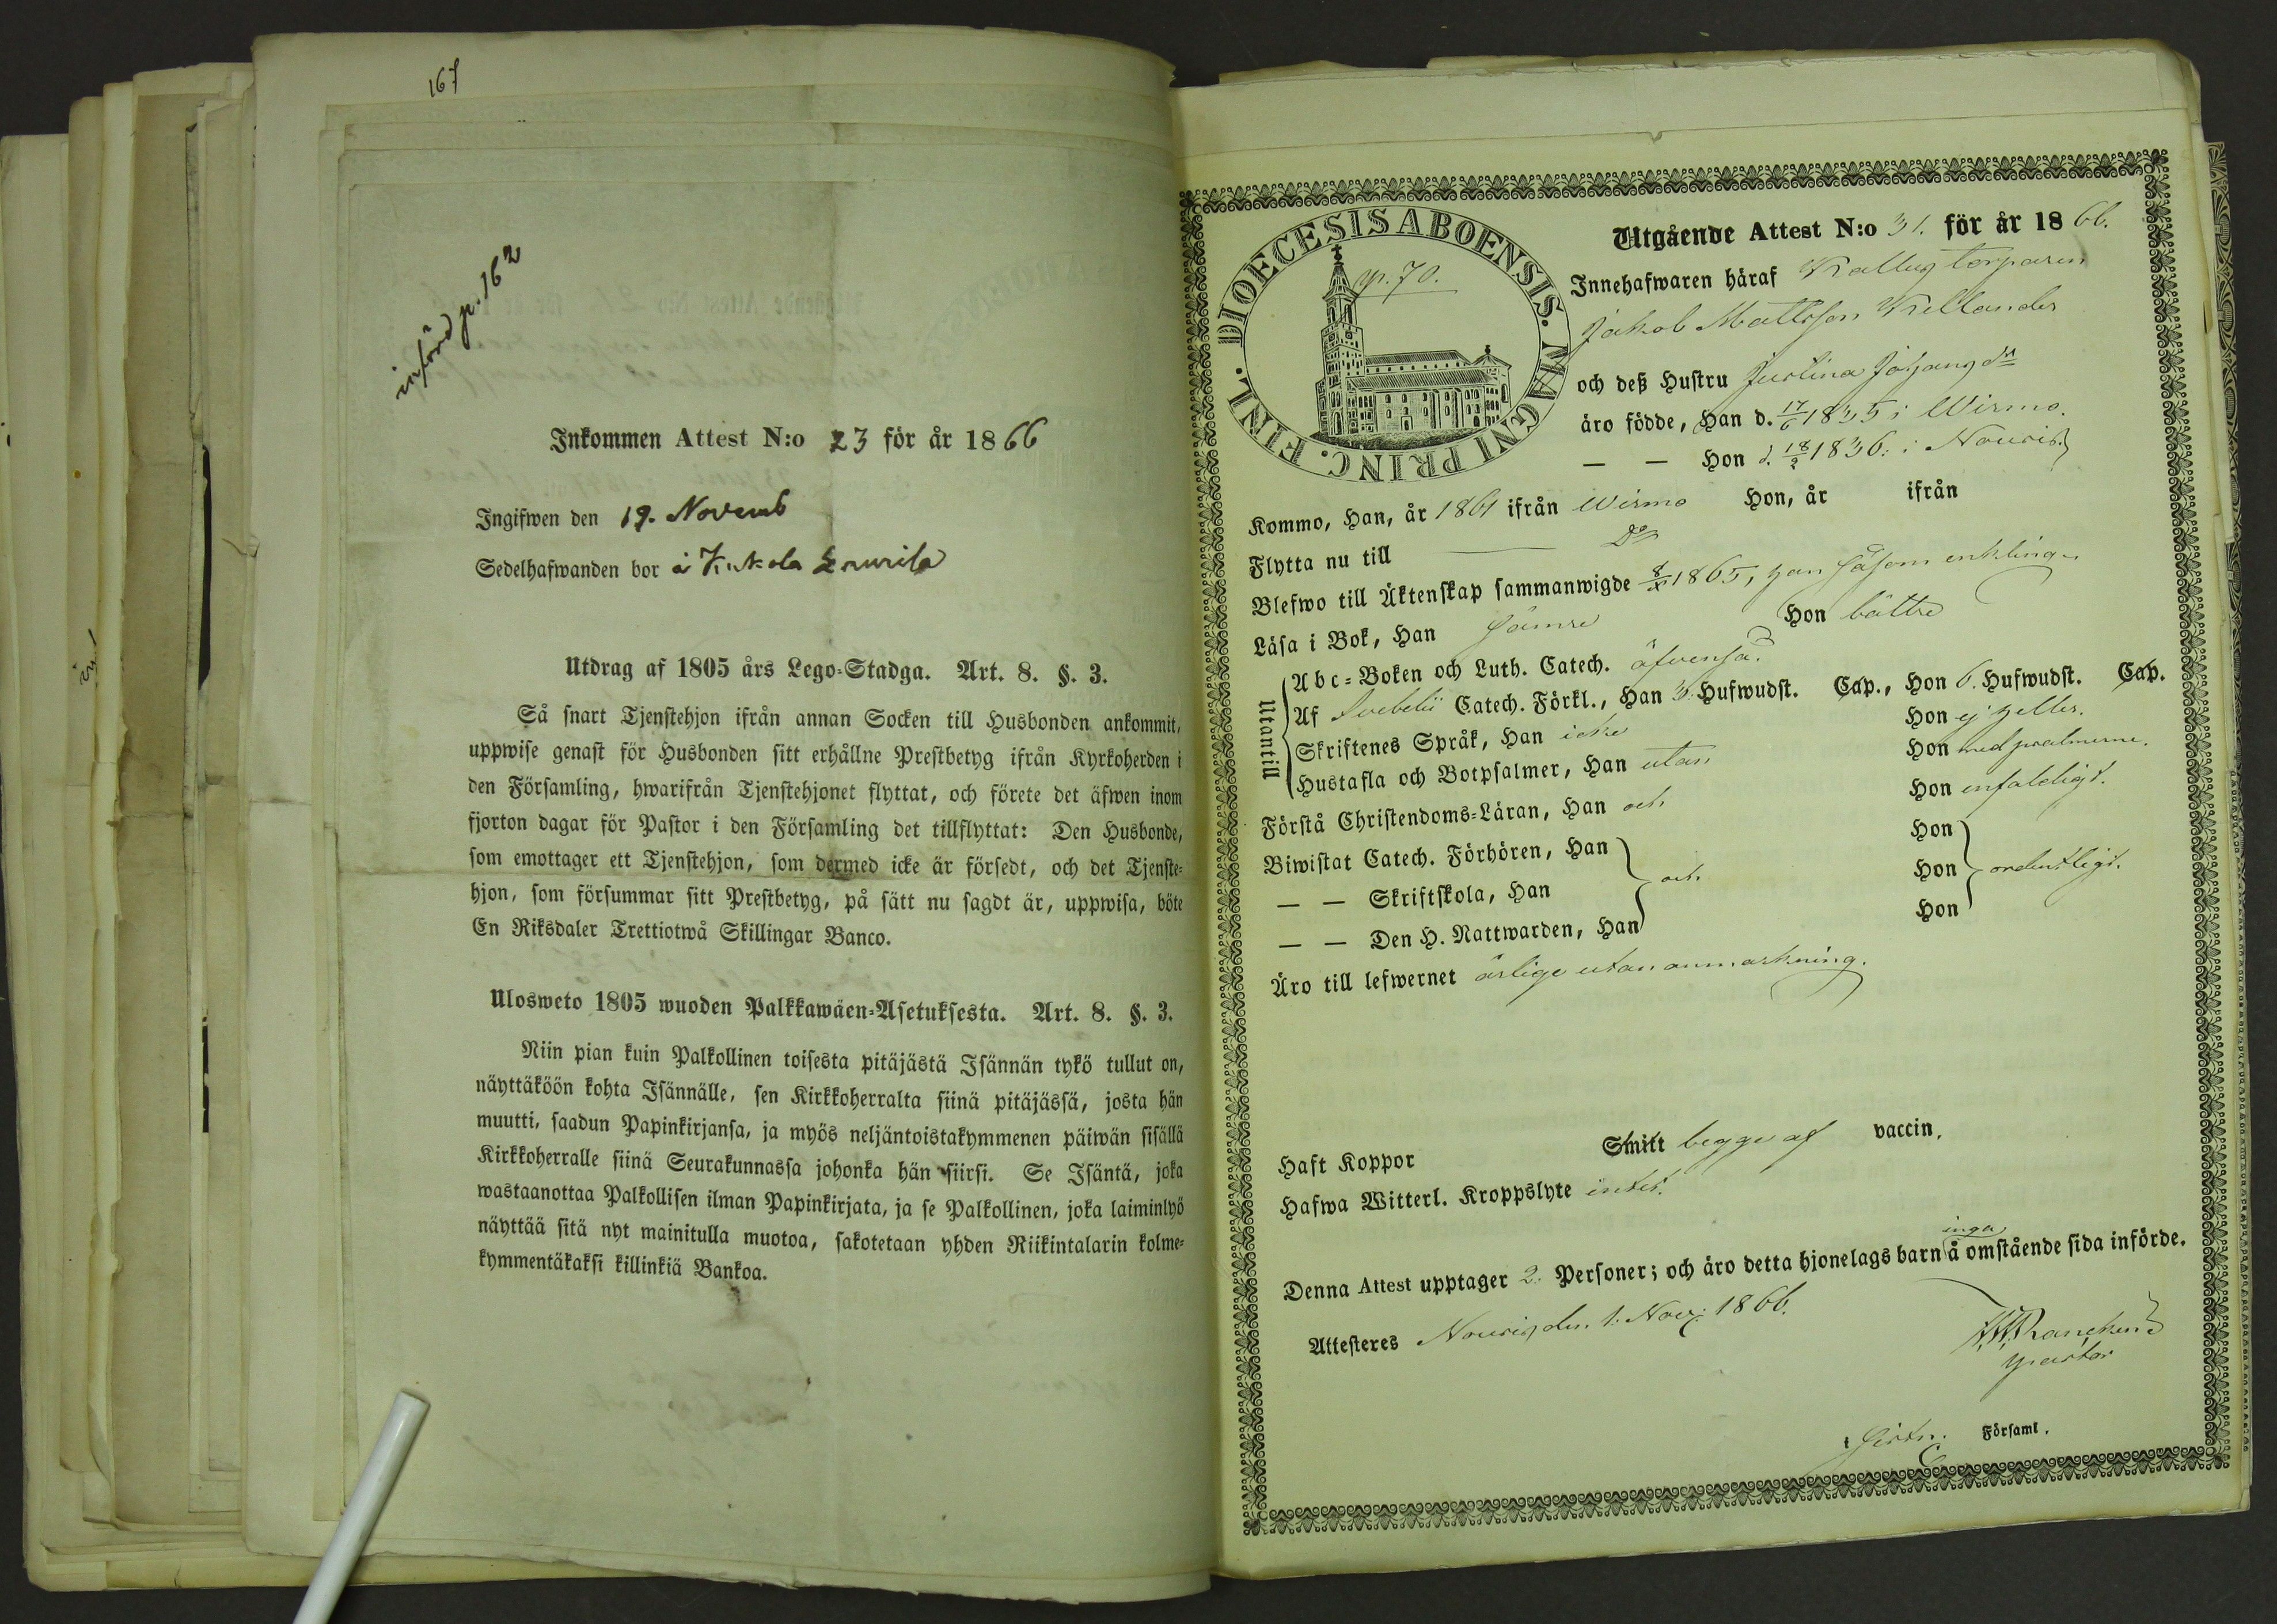 167
införd p. 162
Inkommen Attest N:o 23 för år 1866
Ingifwen den 19. Novemb
Sedelhafwanden bor å Kukola
Utdrag af 1805 års Lego-Stadga. Art. 8. §. 3.
Så snart Tjenstehjon ifrån annan Socken till Husbonden ankommit,
uppwise genast för Husbonden sitt erhållne Prestbetyg ifrån Kyrkoherden i
den Församling, hwarifrån Tjenstehjonet flyttat, och förete det äfwen inom
fjorton dagar för Pastor i den Församling det tillflyttat: Den Husbonde,
som emottager ett Tjenstehjon, som dermed icke är försedt, och det Tjenste-
hjon, som försummar sitt Prestbetyg, på sätt nu sagdt är, uppwisa, böte
En Riksdaler Trettiotwå Skillingar Banco.
Ulosweto 1805 wuoden Palkkawäen-Asetuksesta. Art. 8. §. 3.
Niin pian kuin Palkollinen toisesta pitäjästä Isännän tykö tullut on,
näyttäköön kohta Isännälle, sen Kirkkoherralta siinä pitäjässä, josta hän
muutti, saadun Papinkirjansa, ja myös neljäntoistakymmenen päiwän sisällä
Kirkkoherralle siinä Seurakunnassa johonka hän siirsi. Se Isäntä, joka
wastaanottaa Palkollisen ilman Papinkirjata, ja se Palkollinen, joka laiminlyö
näyttää sitä nyt mainitulla muotoa, sakotetaan yhden Riikintalarin kolme-
kymmentäkaksi killinkiä Bankoa.
DIOECESIS ABOENSIS. MAGNI PRINC. FINL.
p. 70.
Utgående Attest N:o 31. för år 1866.
Innehafwaren häraf torparen
Jakob Mattsson
och deß Hustru Justina Johansdr
äro födde, Han d. 17/6 1835 i Wirmo.
— — Hon d. 18/2 1836. i Nousis
Kommo, Han, år 1861 ifrån Wirmo Hon, år ifrån
Flytta nu till — Do
Blefwo till Äktenskap sammanwigde 1865, han såsom enkling
Läsa i Bok, Han sämre Hon bättre
Utantill
Abc-Boken och Luth. Catech. äfvenså.
Af Svebelii Catech. Förkl., Han 3. Hufwudst. Cap., Hon 6. Hufwudst. Cap.
Skriftenes Språk, Han icke Hon ej heller.
Hustafla och Botpsalmer, Han utan Hon med psalmerne.
Förstå Christendoms-Läran, Han och Hon enfaldigt.
Biwistat Catech. Förhören, Han Hon
— — Skriftskola, Han och Hon ordentligt.
— — Den H. Nattwarden, Han Hon
Äro till lefwernet ärlige utan anmärkning.
Haft Koppor Smitt begge af vaccin.
Hafwa Witterl. Kroppslyte intet.
Denna Attest upptager 2. Personer; och äro detta hjonelags barn inga å omstående sida införde.
Attesteres Nousis den 1. Nov: 1866.
Rancken
Pastor
Församl.